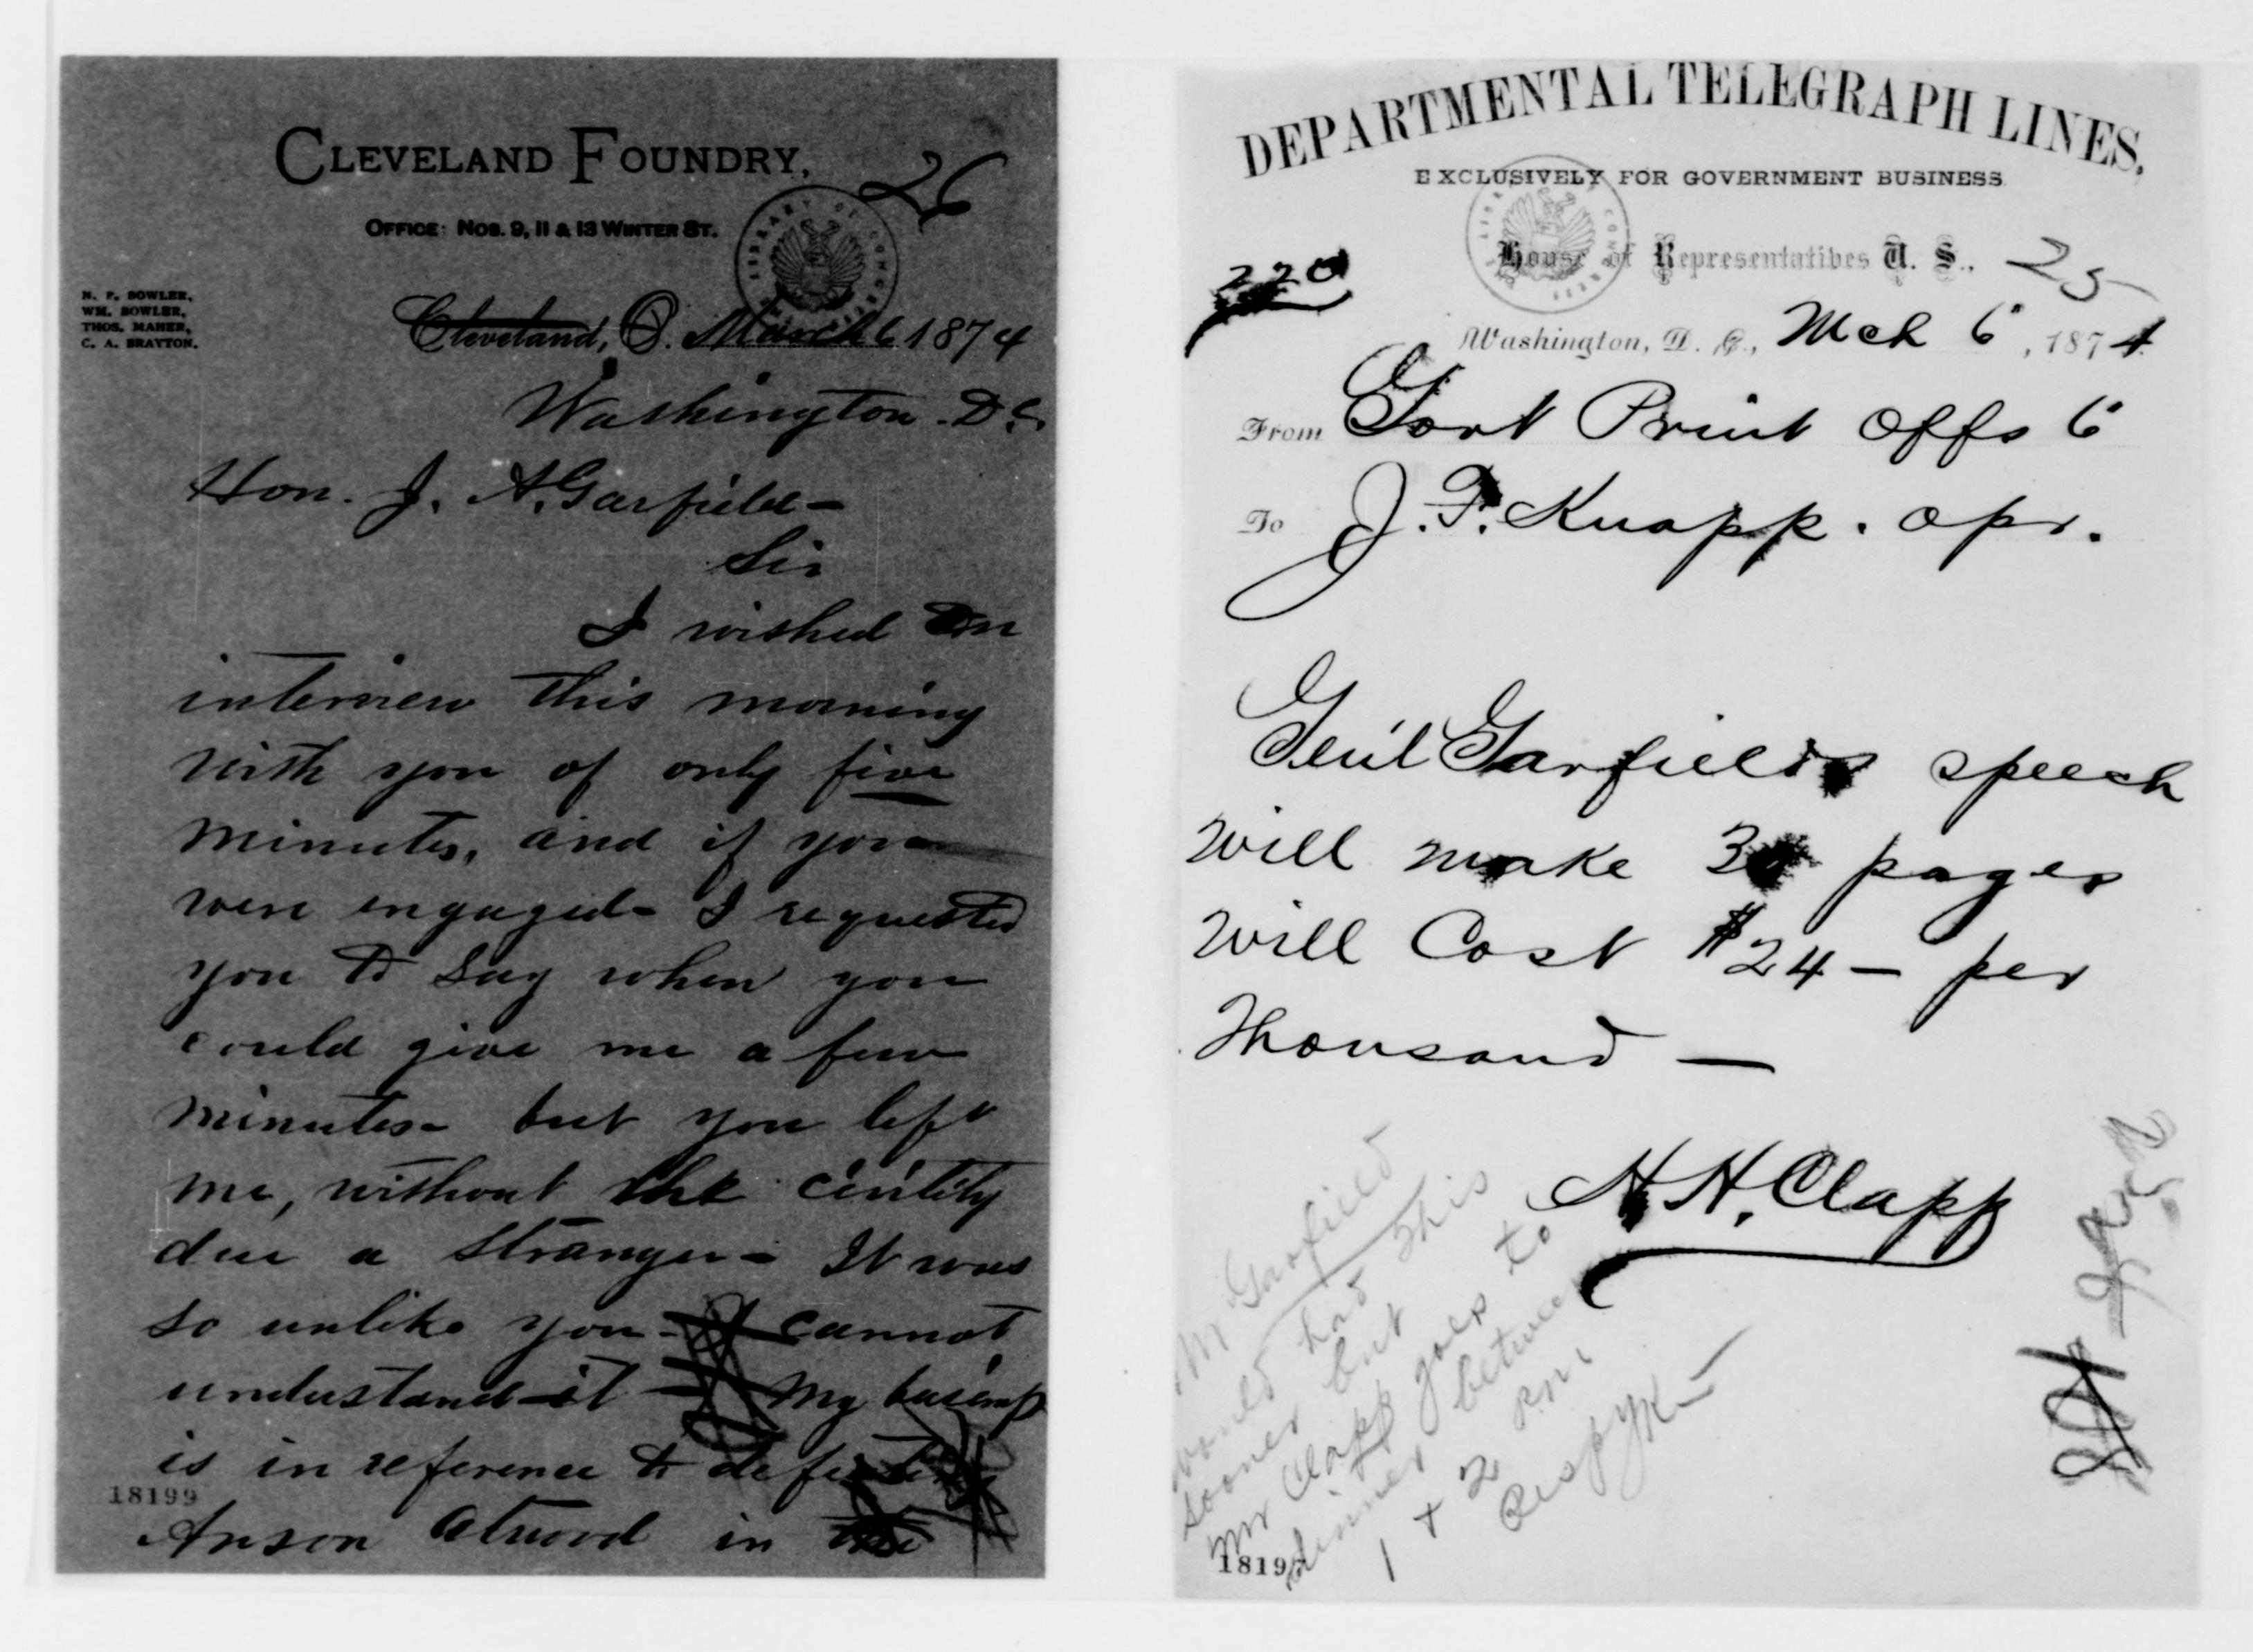 CLEVELAND FOUNDRY,
26
OFFICE: NOS. 9, 11 & 13 WINTER ST.
LIBRARY OF CONGRESS
N. P. BOWLER,
WM. BOWLER,
THOS. MAHER,
C. A. BRAYTON.
Cleveland, O. March 6 1874
Washington. D.C.
Hon. J. A. Garfield-
Sir
I wished an
interview this morning
with you of only five
minutes, and if you
were engaged- I requested
you to say when you
could give me a few
minutes- but you left
me, without the civility
due a stranger- It was
so unlike you- I cannot
understand it - My business
is in reference to defeating
18199
Anson Atwood in the
DEPARTMENTAL TELEGRAPH LINES,
EXCLUSIVELY FOR GOVERNMENT BUSINESS.
LIBRARY OF CONGRESS
House of Representatives U. S., 25
220
Washington, D. C., Mch 6", 1874
From Govt Print Offs 6"
To J. F. Knapp. opr.
Gen'l Garfields speech
will make 30 pages
will Cost $24 - per
Thousand -
H. H. Clapp
M Garfield
would had this
sooner but
Mr Clapp goes to
dinner between
1 + 2 P.M
Respy K-
1819